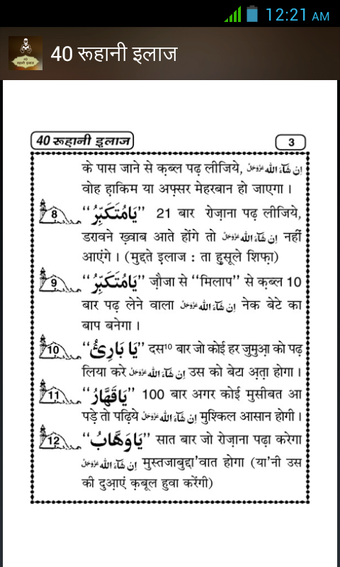 12:21 AM
40 रूहानी इलाज
40 रूहानी इलाज 3
के पास जाने से क़ब्ल पढ़ लीजिये, اِنْ شَآءَ اللّٰه عَزَّوَجَلَّ
वोह हाकिम या अफ़्सर मेहरबान हो जाएगा ।
8 "يَامُتَكَبِّرُ" 21 बार रोज़ाना पढ़ लीजिये,
डरावने ख़्वाब आते होंगे तो اِنْ شَآءَ اللّٰه عَزَّوَجَلَّ नहीं
आएंगे । (मुद्दते इलाज : ता हुसूले शिफ़ा)
9 "يَامُتَكَبِّرُ" ज़ौजा से "मिलाप" से क़ब्ल 10
बार पढ़ लेने वाला اِنْ شَآءَ اللّٰه عَزَّوَجَلَّ नेक बेटे का
बाप बनेगा ।
10 "يَا بَارِئُ" दस¹⁰ बार जो कोई हर जुमुआ को पढ़
लिया करे اِنْ شَآءَ اللّٰه عَزَّوَجَلَّ उस को बेटा अ़ता होगा ।
11 "يَاقَهَّارُ" 100 बार अगर कोई मुसीबत आ
पड़े तो पढ़िये اِنْ شَآءَ اللّٰه عَزَّوَجَلَّ मुश्किल आसान होगी ।
12 "يَاوَهَّابُ" सात बार जो रोज़ाना पढ़ा करेगा
اِنْ شَآءَ اللّٰه عَزَّوَجَلَّ मुस्तजाबुद्दा'वात होगा (या'नी उस
की दुआ़एं क़बूल हुवा करेंगी)